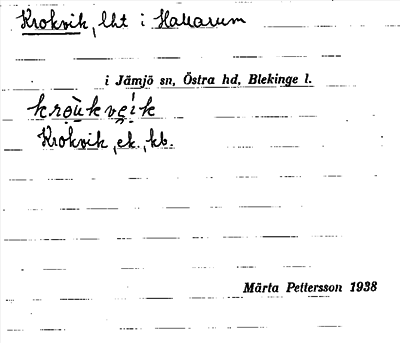 Krokvik, lht i Hallarum
i Jämjö sn, Östra hd, Blekinge l.
Krokvik, ek., kb.
Märta Pettersson 1938